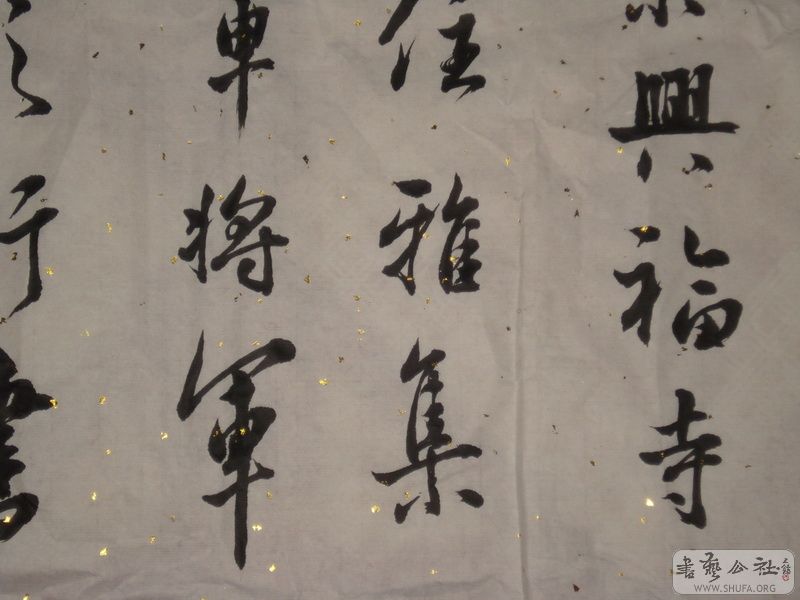 興福寺
住雅集
將軍
書艺公社
WWW.SHUFA.ORG